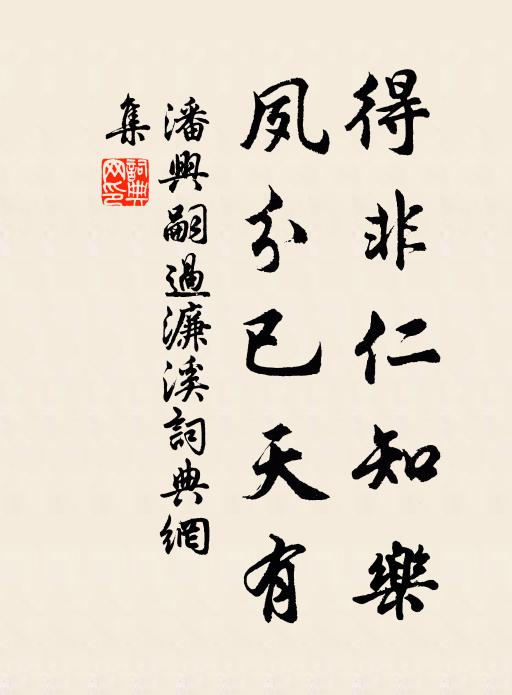 得非仁知樂
夙分已天有
潘興嗣過濂溪詞典網
集
詞典網印